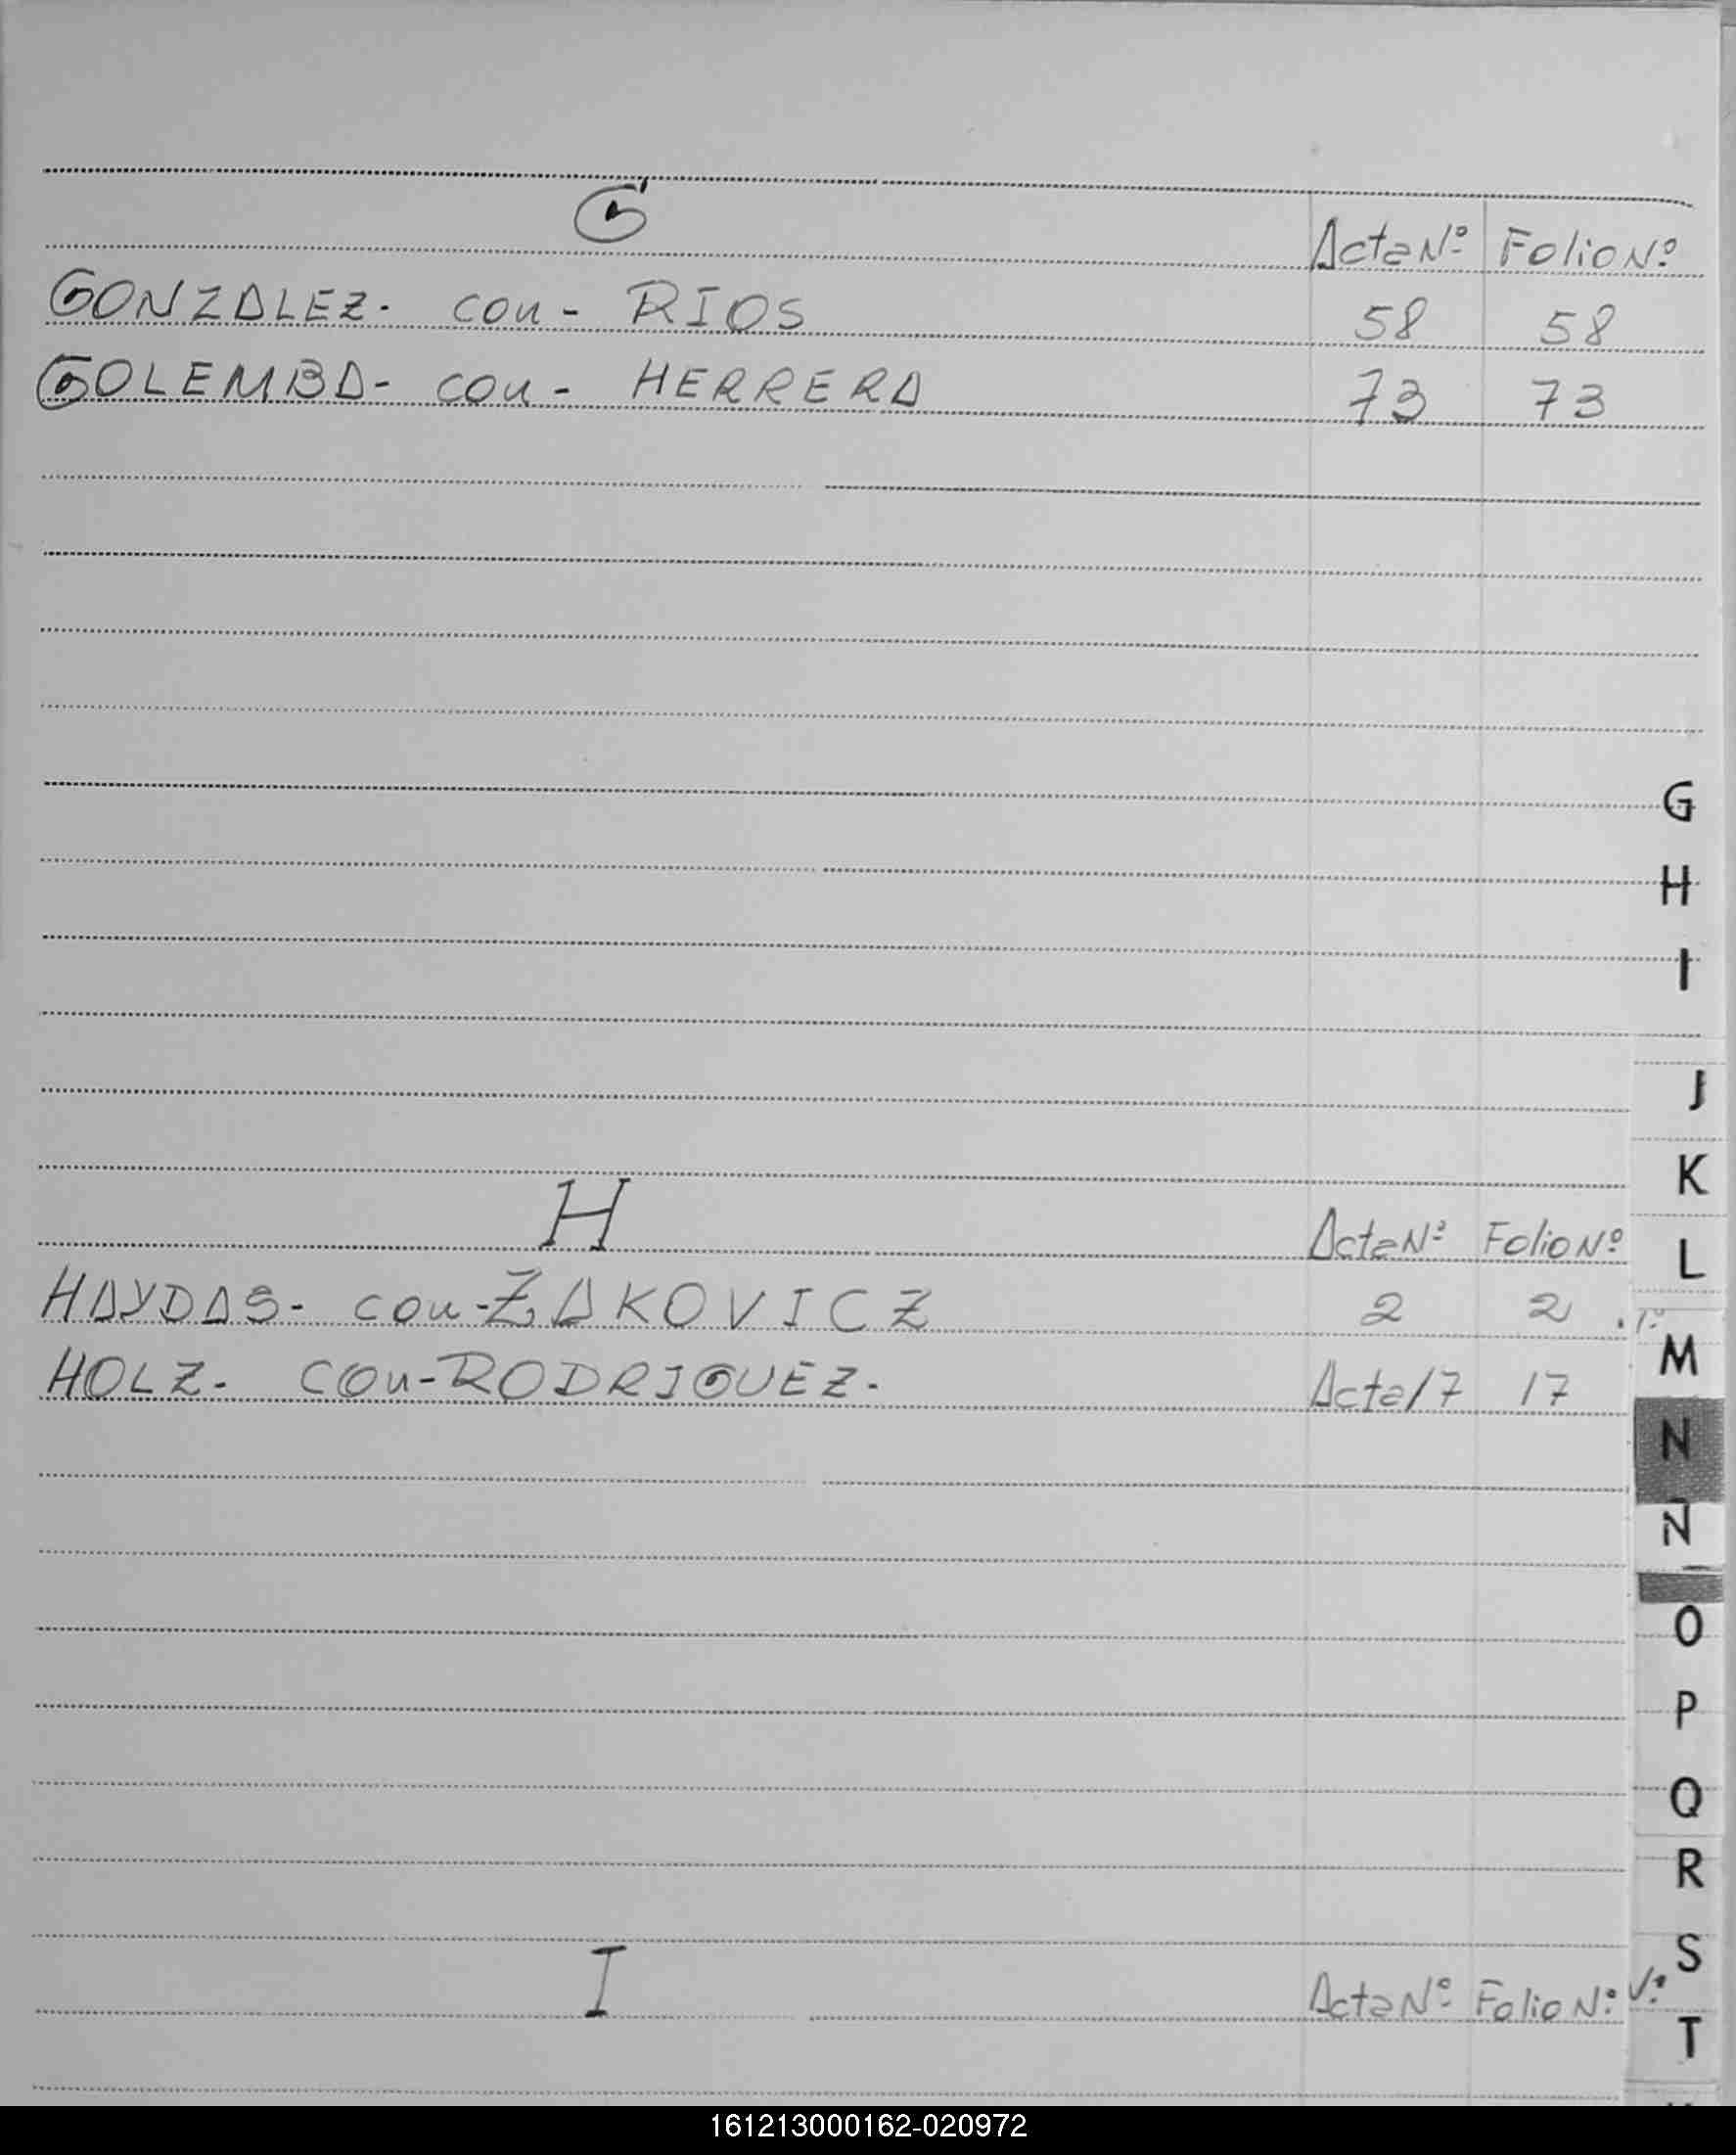 G
Acta Nº Folio Nº
GONZALEZ- con - RIOS 58 58
GOLEMBA- con - HERRERA 73 73
G
H
I
J
K
H Acta Nº Folio Nº
L
HAYDAS- con-ZAKOVICZ 2 2
M
HOLZ- con-RODRIGUEZ- Acta 17 17
N
Ñ
O
P
Q
R
S
I Acta Nº Folio Nº
T
161213000162-020972